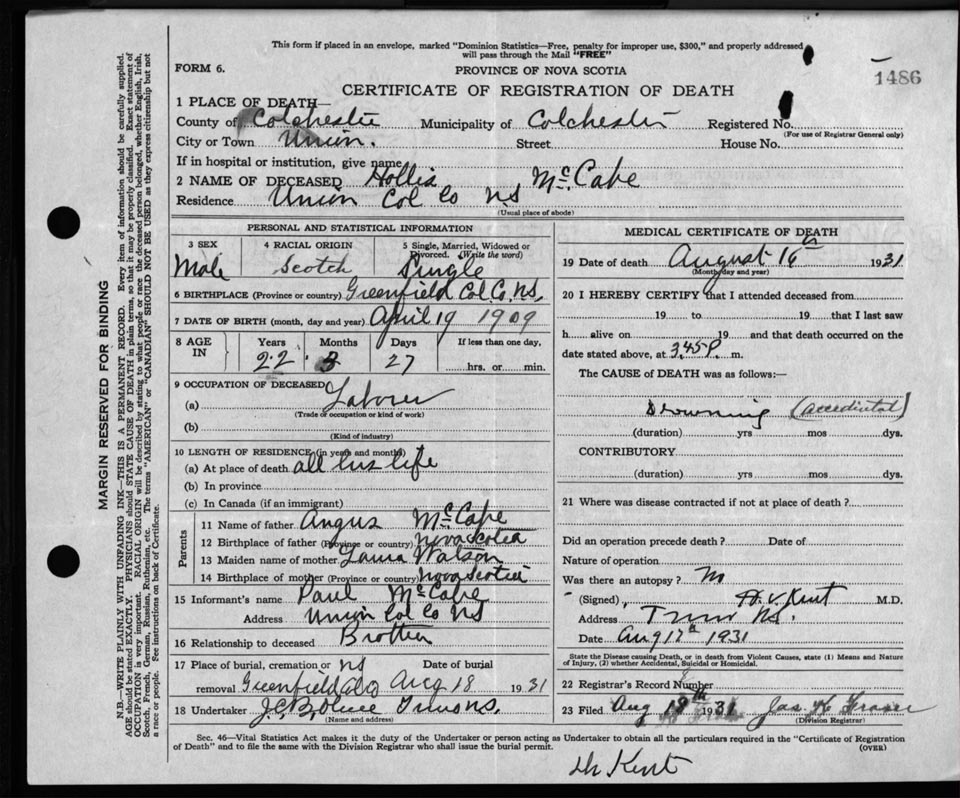 This form if placed in an envelope, marked "Dominion Statistics—Free, penalty for improper use, $300," and properly addressed
will pass through the Mail "FREE"
FORM 6.
PROVINCE OF NOVA SCOTIA
1486
CERTIFICATE OF REGISTRATION OF DEATH
1 PLACE OF DEATH—
County of Colchester Municipality of Colchester Registered No.
(For use of Registrar General only)
City or Town Union. Street House No.
If in hospital or institution, give name
2 NAME OF DECEASED Hollis McCabe
Residence Union Col Co NS
(Usual place of abode)
PERSONAL AND STATISTICAL INFORMATION
3 SEX 4 RACIAL ORIGIN 5 Single, Married, Widowed or
Divorced. (Write the word)
Male Scotch Single
6 BIRTHPLACE (Province or country) Greenfield Col Co, NS,
7 DATE OF BIRTH (month, day and year) April 19 1909
8 AGE IN Years Months Days If less than one day,
22 3 27 hrs. or min.
9 OCCUPATION OF DECEASED
(a) Laborer
(Trade or occupation or kind of work)
(b)
(Kind of industry)
10 LENGTH OF RESIDENCE (in years and months)
(a) At place of death all his life
(b) In province
(c) In Canada (if an immigrant)
Parents
11 Name of father Angus McCabe
12 Birthplace of father (Province or country) Nova Scotia
13 Maiden name of mother Laura Watson
14 Birthplace of mother (Province or country) Nova Scotia
15 Informant's name Paul McCabe
Address Union Col Co NS
16 Relationship to deceased Brother
17 Place of burial, cremation or NS Date of burial
removal Greenfield Col Co Aug 18 1931
18 Undertaker Truro NS.
(Name and address)
MEDICAL CERTIFICATE OF DEATH
19 Date of death August 16th 1931
(Month, day and year)
20 I HEREBY CERTIFY that I attended deceased from
19 to 19 that I last saw
h alive on 19 and that death occurred on the
date stated above, at 3.45 P. m.
The CAUSE of DEATH was as follows:—
Drowning (accidental)
(duration) yrs mos dys.
CONTRIBUTORY
(duration) yrs mos dys.
21 Where was disease contracted if not at place of death?
Did an operation precede death? Date of
Nature of operation
Was there an autopsy? No
(Signed), H. V. Kent M.D.
Address Truro NS.
Date Aug 17th 1931
State the Disease causing Death, or in death from Violent Causes, state (1) Means and Nature
of Injury, (2) whether Accidental, Suicidal or Homicidal.
22 Registrar's Record Number
23 Filed Aug 18th 1931 Jas H Fraser
(Division Registrar)
Sec. 46—Vital Statistics Act makes it the duty of the Undertaker or person acting as Undertaker to obtain all the particulars required in the "Certificate of Registration
of Death" and to file the same with the Division Registrar who shall issue the burial permit.
(OVER)
Dr Kent
MARGIN RESERVED FOR BINDING
N.B.—WRITE PLAINLY WITH UNFADING INK—THIS IS A PERMANENT RECORD. Every item of information should be carefully supplied.
AGE should be stated EXACTLY. PHYSICIANS should STATE CAUSE OF DEATH in plain terms, so that it may be properly classified. Exact statement of
OCCUPATION is very important. RACIAL ORIGIN will be described by stating to what people or race the deceased person belonged, whether English, Irish,
Scotch, French, German, Russian, Ruthenian, etc. The terms "AMERICAN" or "CANADIAN" SHOULD NOT BE USED as they express citizenship but not
a race or people. See instructions on back of Certificate.